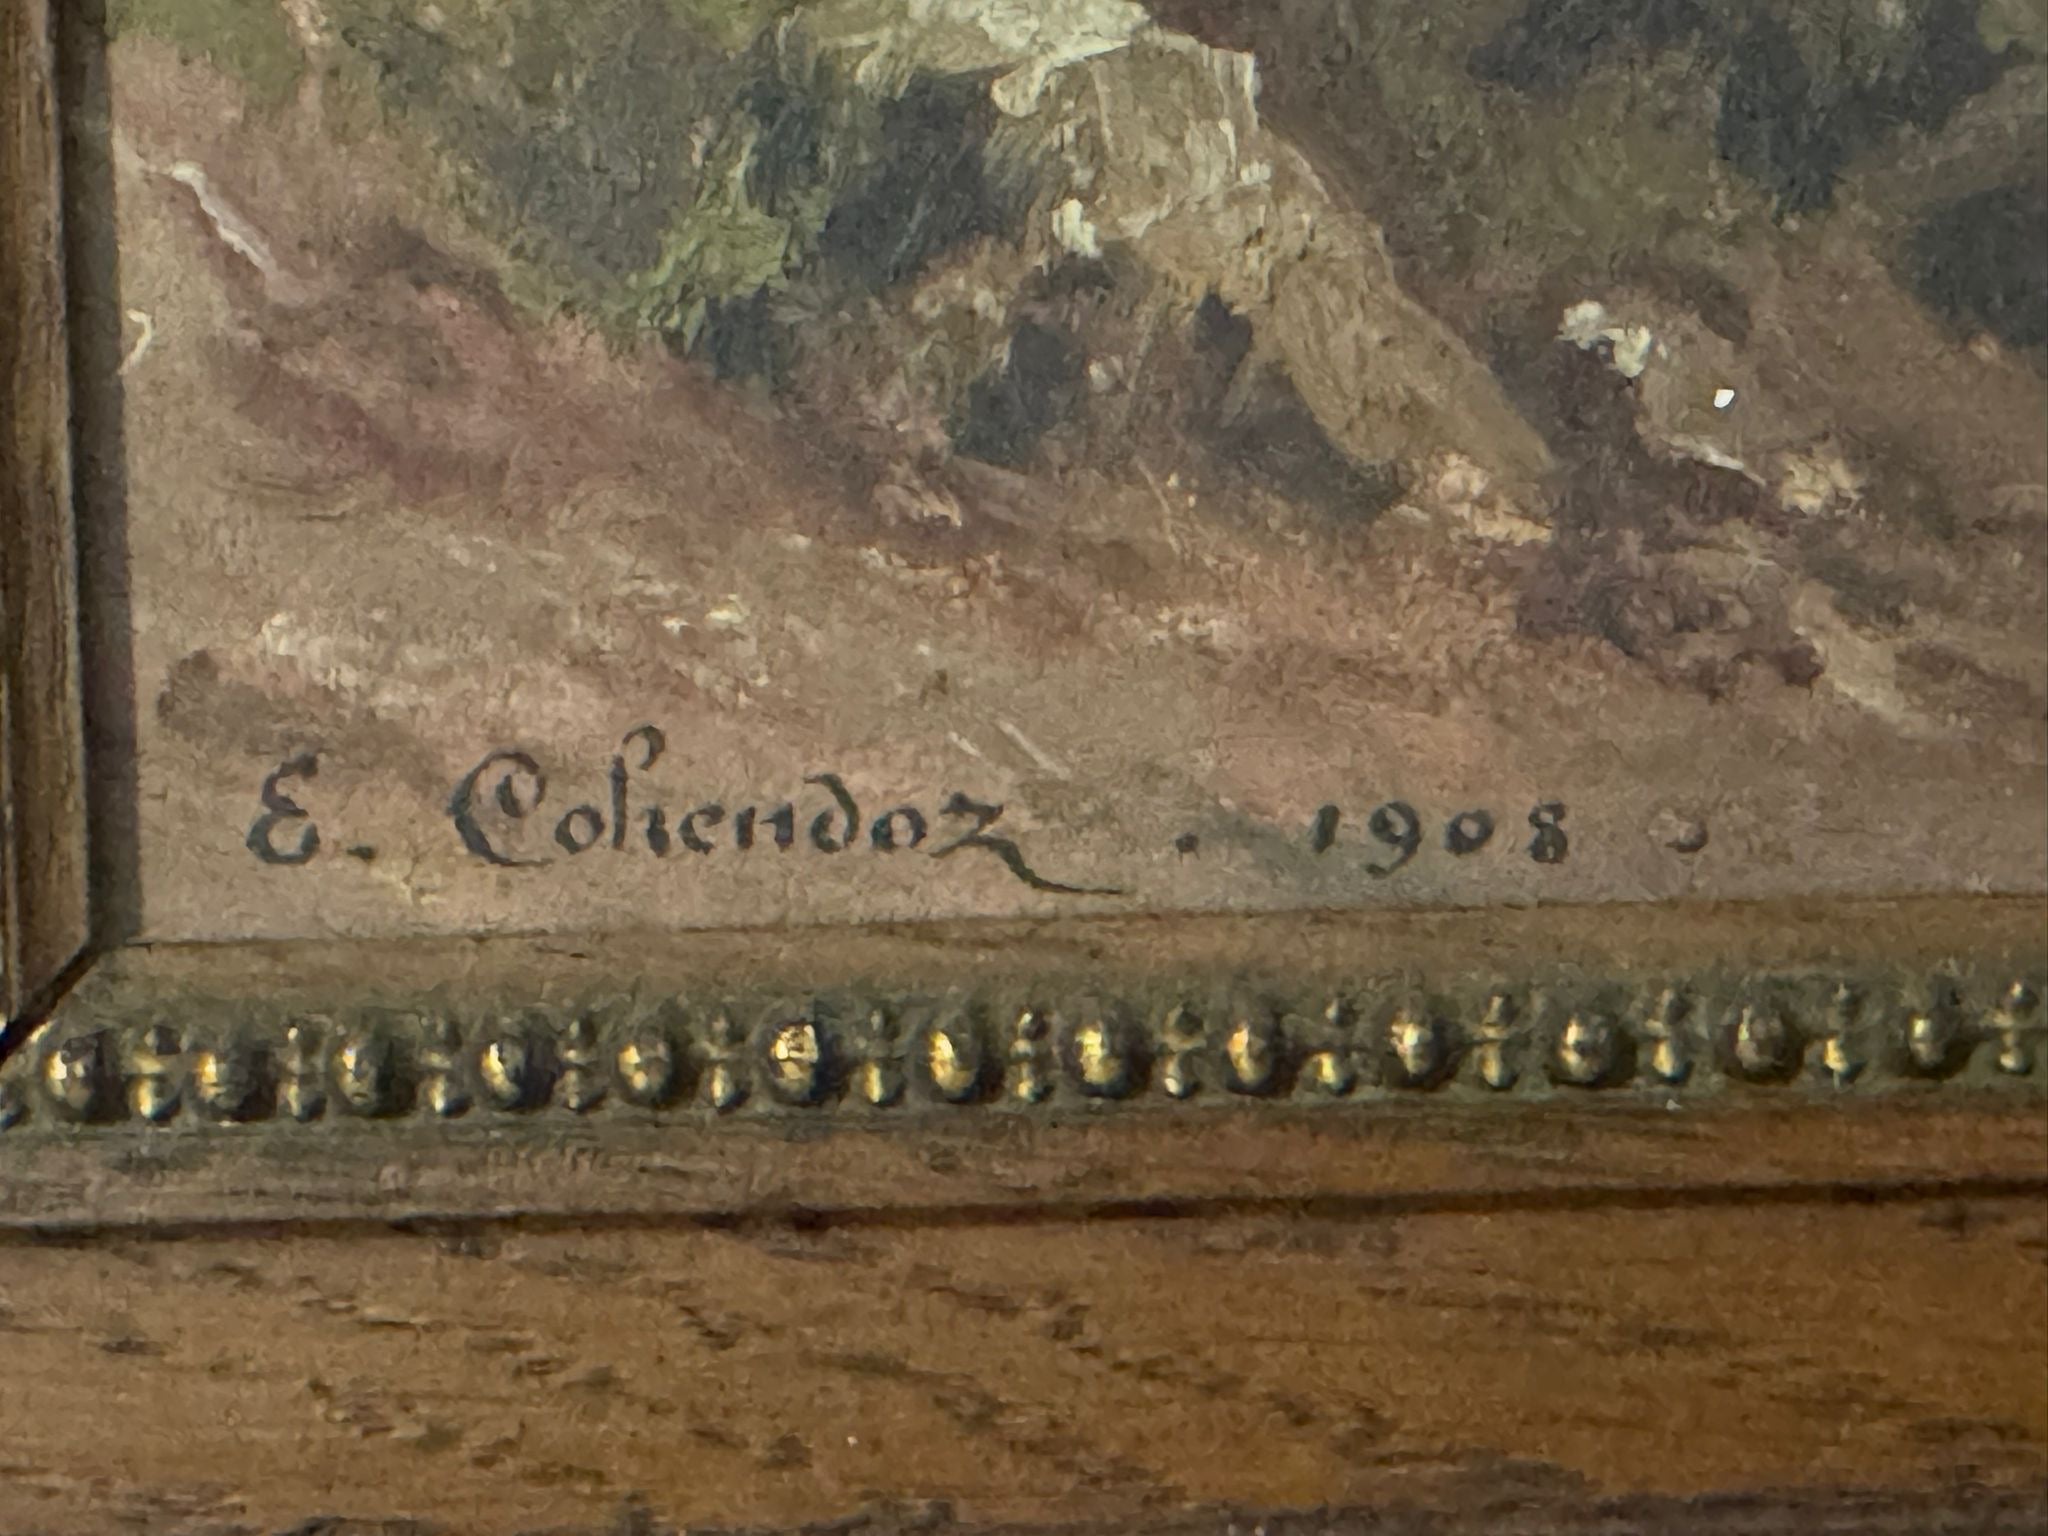 E. Cohendoz . 1908